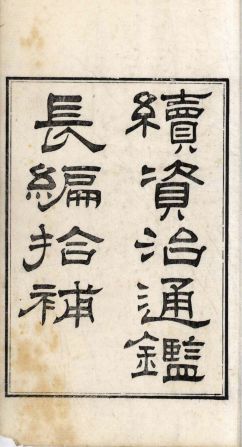 續資治通鑑
長編拾補